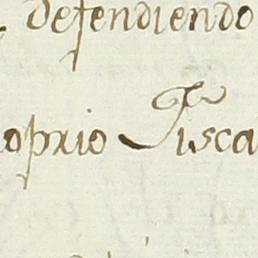 defendiendo
oprio Fisca